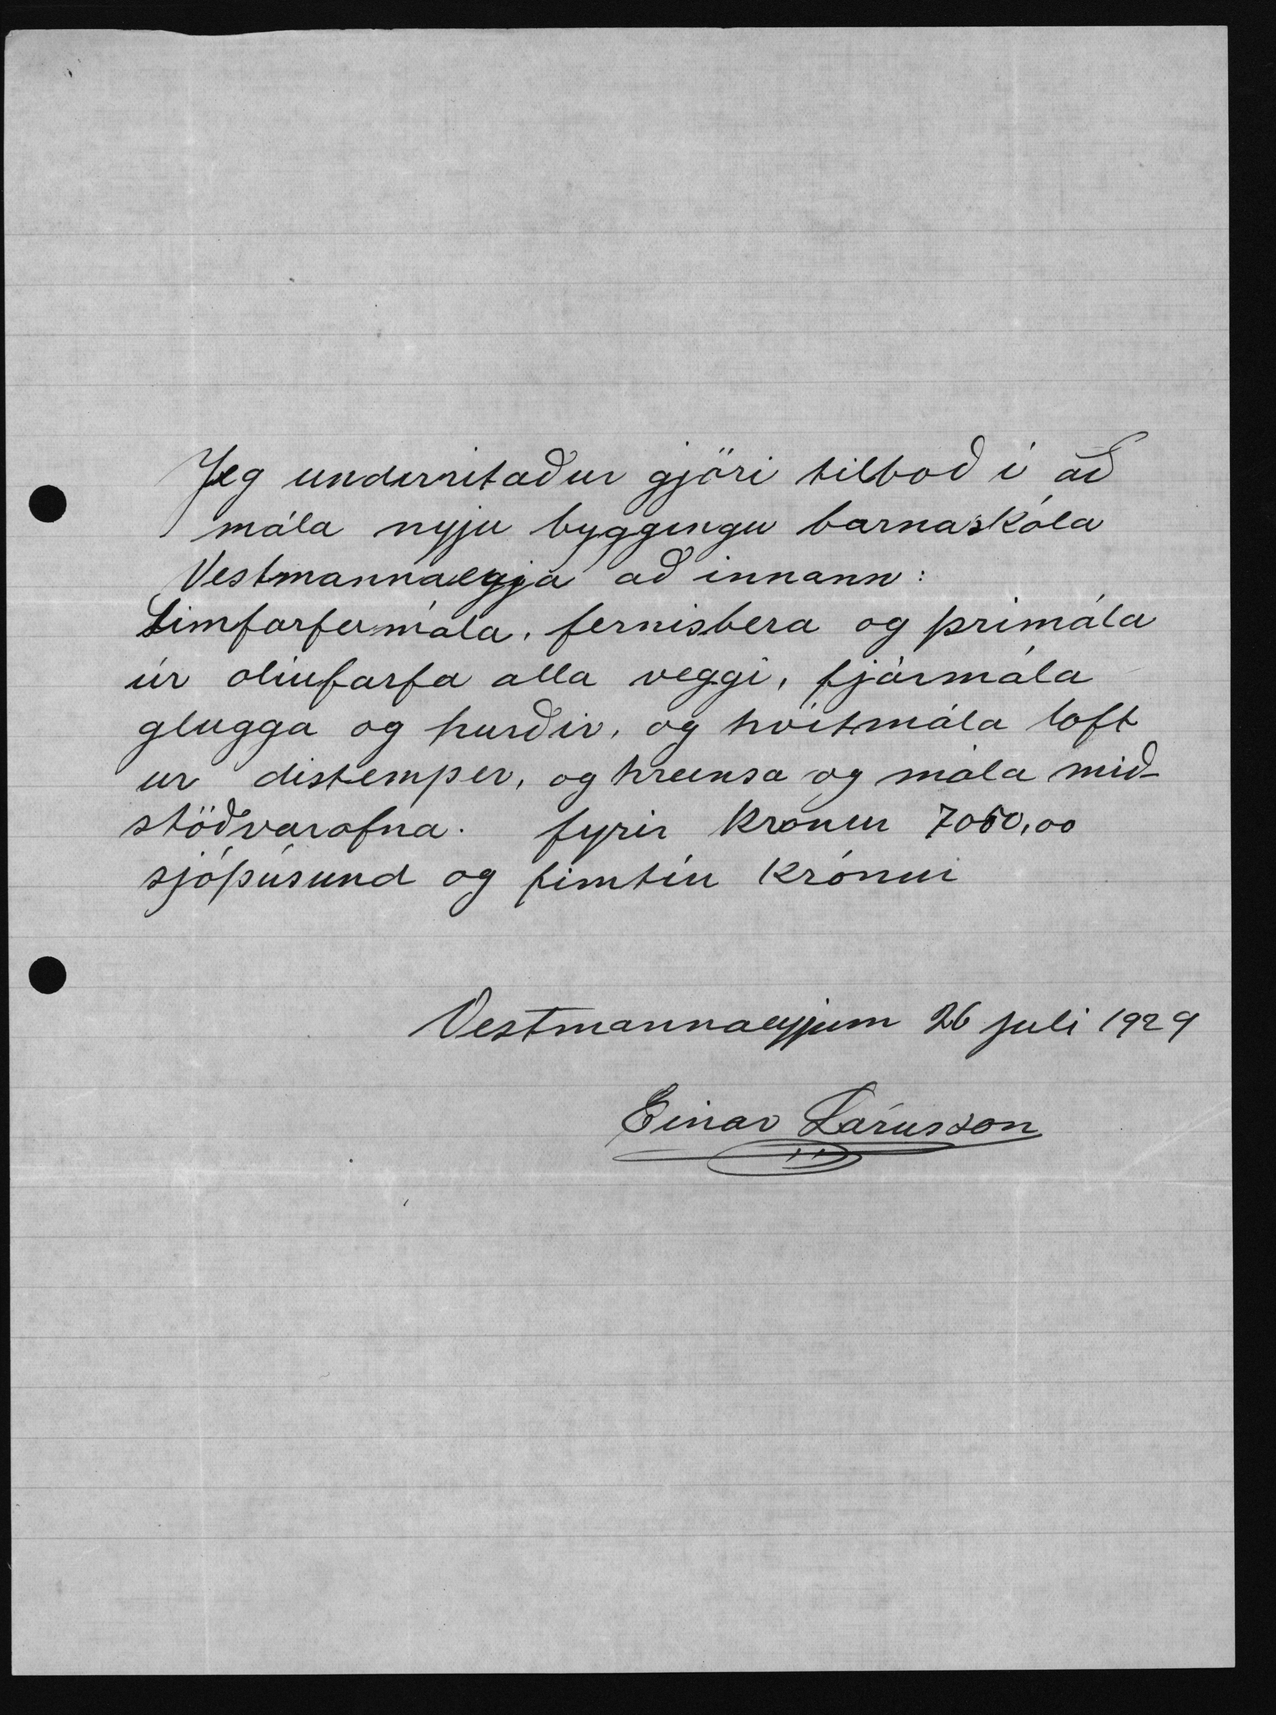 Jeg undirritaður gjöri tilboð í að
mála nyju byggingu barnaskóla
Vestmannaeyja að innann:
Limfarfermála, fernisbera og þrimála
úr oliufarfa alla veggi, fjórmála
glugga og hurðir, og hvítmála loft
ur distemper, og hreinsa og mála mið-
stöðvarofna. fyrir Kronur 7050,00
sjöþúsund og fimtíu Krónur
Vestmannaeyjum 26 juli 1929
Einar Lárusson